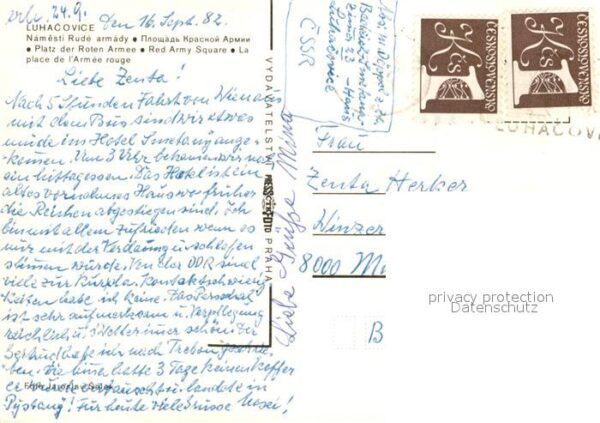 erh. 24.9.
Den 16. Sept. 82.
LUHAČOVICE
Náměstí Rudé armády • Площадь Красной Армии
• Platz der Roten Armee • Red Army Square • La
place de l'Armée rouge
Liebe Zenta!
Nach 5 Stunden Fahrt von Wien aus
mit dem Bus sind wir etwas
müde im Hotel Smetana ange-
kommen. Um 3 Uhr bekamen wir noch
ein Mittagessen. Das Hotel ist ein
altes vornehmes Haus wo früher
die Reichen abgestiegen sind. Ich
bin mit allem zufrieden wenn es
nur mit der Verdauung u. schlafen
stimmen würde. Von der DDR sind
viele zur Kur da. Kontaktschwierig-
keiten habe ich keine. Das Personal
ist sehr aufmerksam u. Verpflegung
reichlich u. 's Wetter immer schön. Der
Gertrud habe ich nach geschrie-
ben. Die hatte 3 Tage keinen Koffer
er wurde vertauscht u. landete in
Pystany! Für heute viele Grüsse
Foto
VYDAVATELSTVÍ
PRESSFOTO
PRAHA
Liebe Grüsse
ČSSR
Luhačovice
Kčs
ČESKOSLOVENSKO
Kčs
ČESKOSLOVENSKO
LUHAČOVI
Frau
Zenta Herker
Winzer
8000 Mü
B
privacy protection
Datenschutz